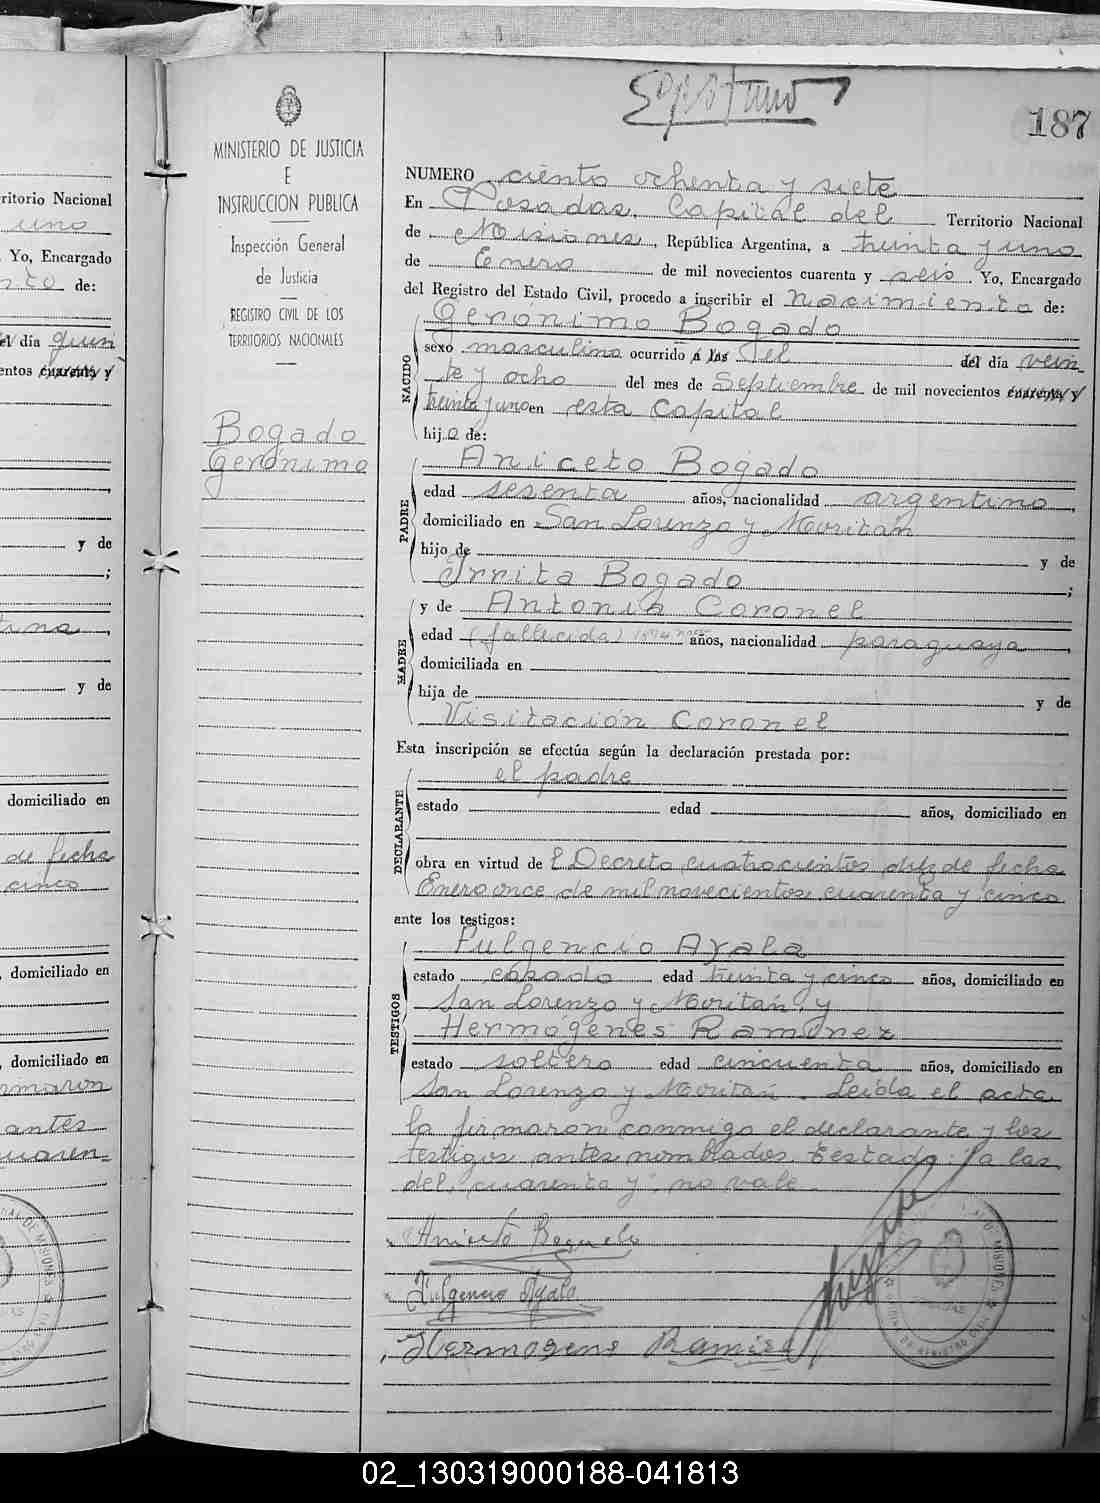 187
MINISTERIO DE JUSTICIA
E
INSTRUCCION PUBLICA
Inspección General
de Justicia
REGISTRO CIVIL DE LOS
TERRITORIOS NACIONALES
Bogado
Gerónimo
NUMERO ciento ochenta y siete
En Posadas, Capital del Territorio Nacional
de Misiones, República Argentina, a treinta y uno
de Enero de mil novecientos cuarenta y seis Yo, Encargado
del Registro del Estado Civil, procedo a inscribir el nacimiento de:
Geronimo Bogado
NACIDO
sexo masculino ocurrido a las del del día vein
te y ocho del mes de Septiembre de mil novecientos cuarenta y
treinta y uno en esta Capital
hijo de:
Aniceto Bogado
PADRE
edad sesenta años, nacionalidad argentino,
domiciliado en San Lorenzo y Moritan
hijo de y de
Irrita Bogado ;
y de Antonia Coronel
MADRE
edad (fallecida) años, nacionalidad paraguaya,
domiciliada en
hija de y de
Visitación Coronel
Esta inscripción se efectúa según la declaración prestada por:
el padre
DECLARANTE
estado edad años, domiciliado en
obra en virtud de l Decreto cuatrocientos diez de fecha
Enero once de mil novecientos cuarenta y cinco
ante los testigos:
Fulgencio Ayala
TESTIGOS
estado casado edad treinta y cinco años, domiciliado en
San Lorenzo y Moritán, y
Hermógenes Ramirez
estado soltero edad cincuenta años, domiciliado en
San Lorenzo y Moritán. Leida el acta
la firmaron conmigo el declarante y los
testigos antes nombrados. Testado: "a las
del, cuarenta y": no vale
Fulgencio Ayala
Hermogenes Ramirez
ritorio Nacional
uno
Yo, Encargado
de:
el día
entos cuarenta y
y de
;
y de
domiciliado en
de fecha
cinco
, domiciliado en
, domiciliado en
rmaron
antes
uaren-
02_130319000188-041813